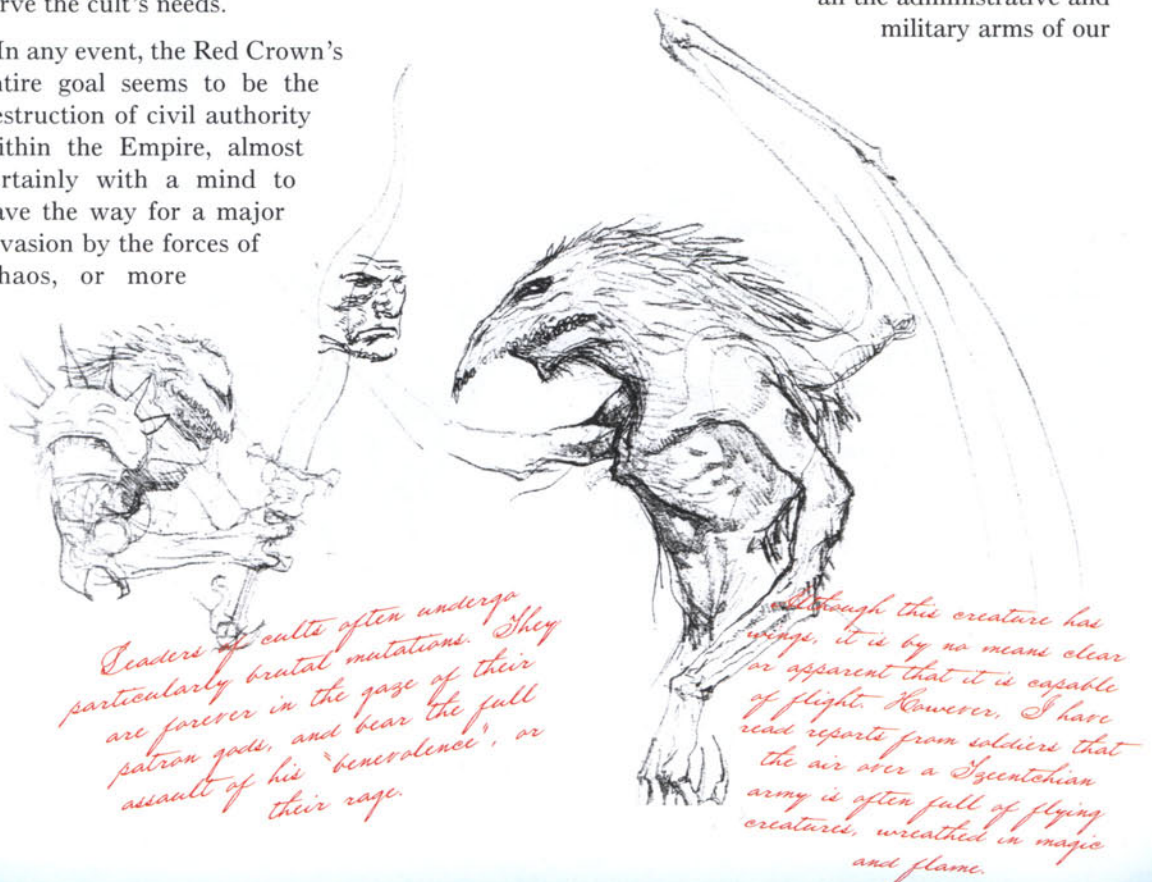 rve the cult's needs.
In any event, the Red Crown's
ntire goal seems to be the
estruction of civil authority
ithin the Empire, almost
rtainly with a mind to
ave the way for a major
vasion by the forces of
haos, or more
all the administrative and
military arms of our
Leaders of cults often undergo
particularly brutal mutations. They
are forever in the gaze of their
patron gods, and bear the full
assault of his "benevolence", or
their rage.
Although this creature has
wings, it is by no means clear
or apparent that it is capable
of flight. However, I have
read reports from soldiers that
the air over a Tzeentchian
army is often full of flying
creatures, wreathed in magic
and flame.